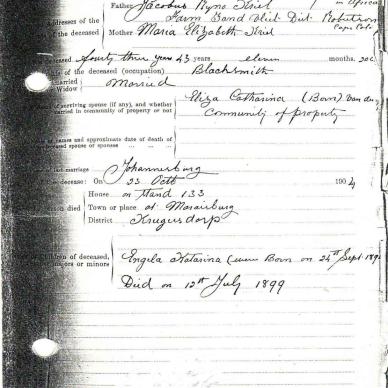 Father Jacobus Ryno Kriel in Africa
Addresses of the Farm Zand Vliet Dist. Robertson
Cape Colo
deceased Mother Maria Elizabeth Kriel
deceased fourty three years 43 years eleven months.
of the deceased (occupation) Blacksmith
Married
Widow Married
of surviving spouse (if any), and whether Eliza Catharina (Born) Van der
married in community of property or not Community of property
names and approximate date of death of
deceased spouse or spouses
of last marriage Johannesburg
decease: On 23 Octb 1904
House on Stand 133
person died Town or place at Moraisburg
District Krugersdorp
Children of deceased, Engela Katarina (were Born on 24th Sept 189
majors or minors
Died on 12th July 1899